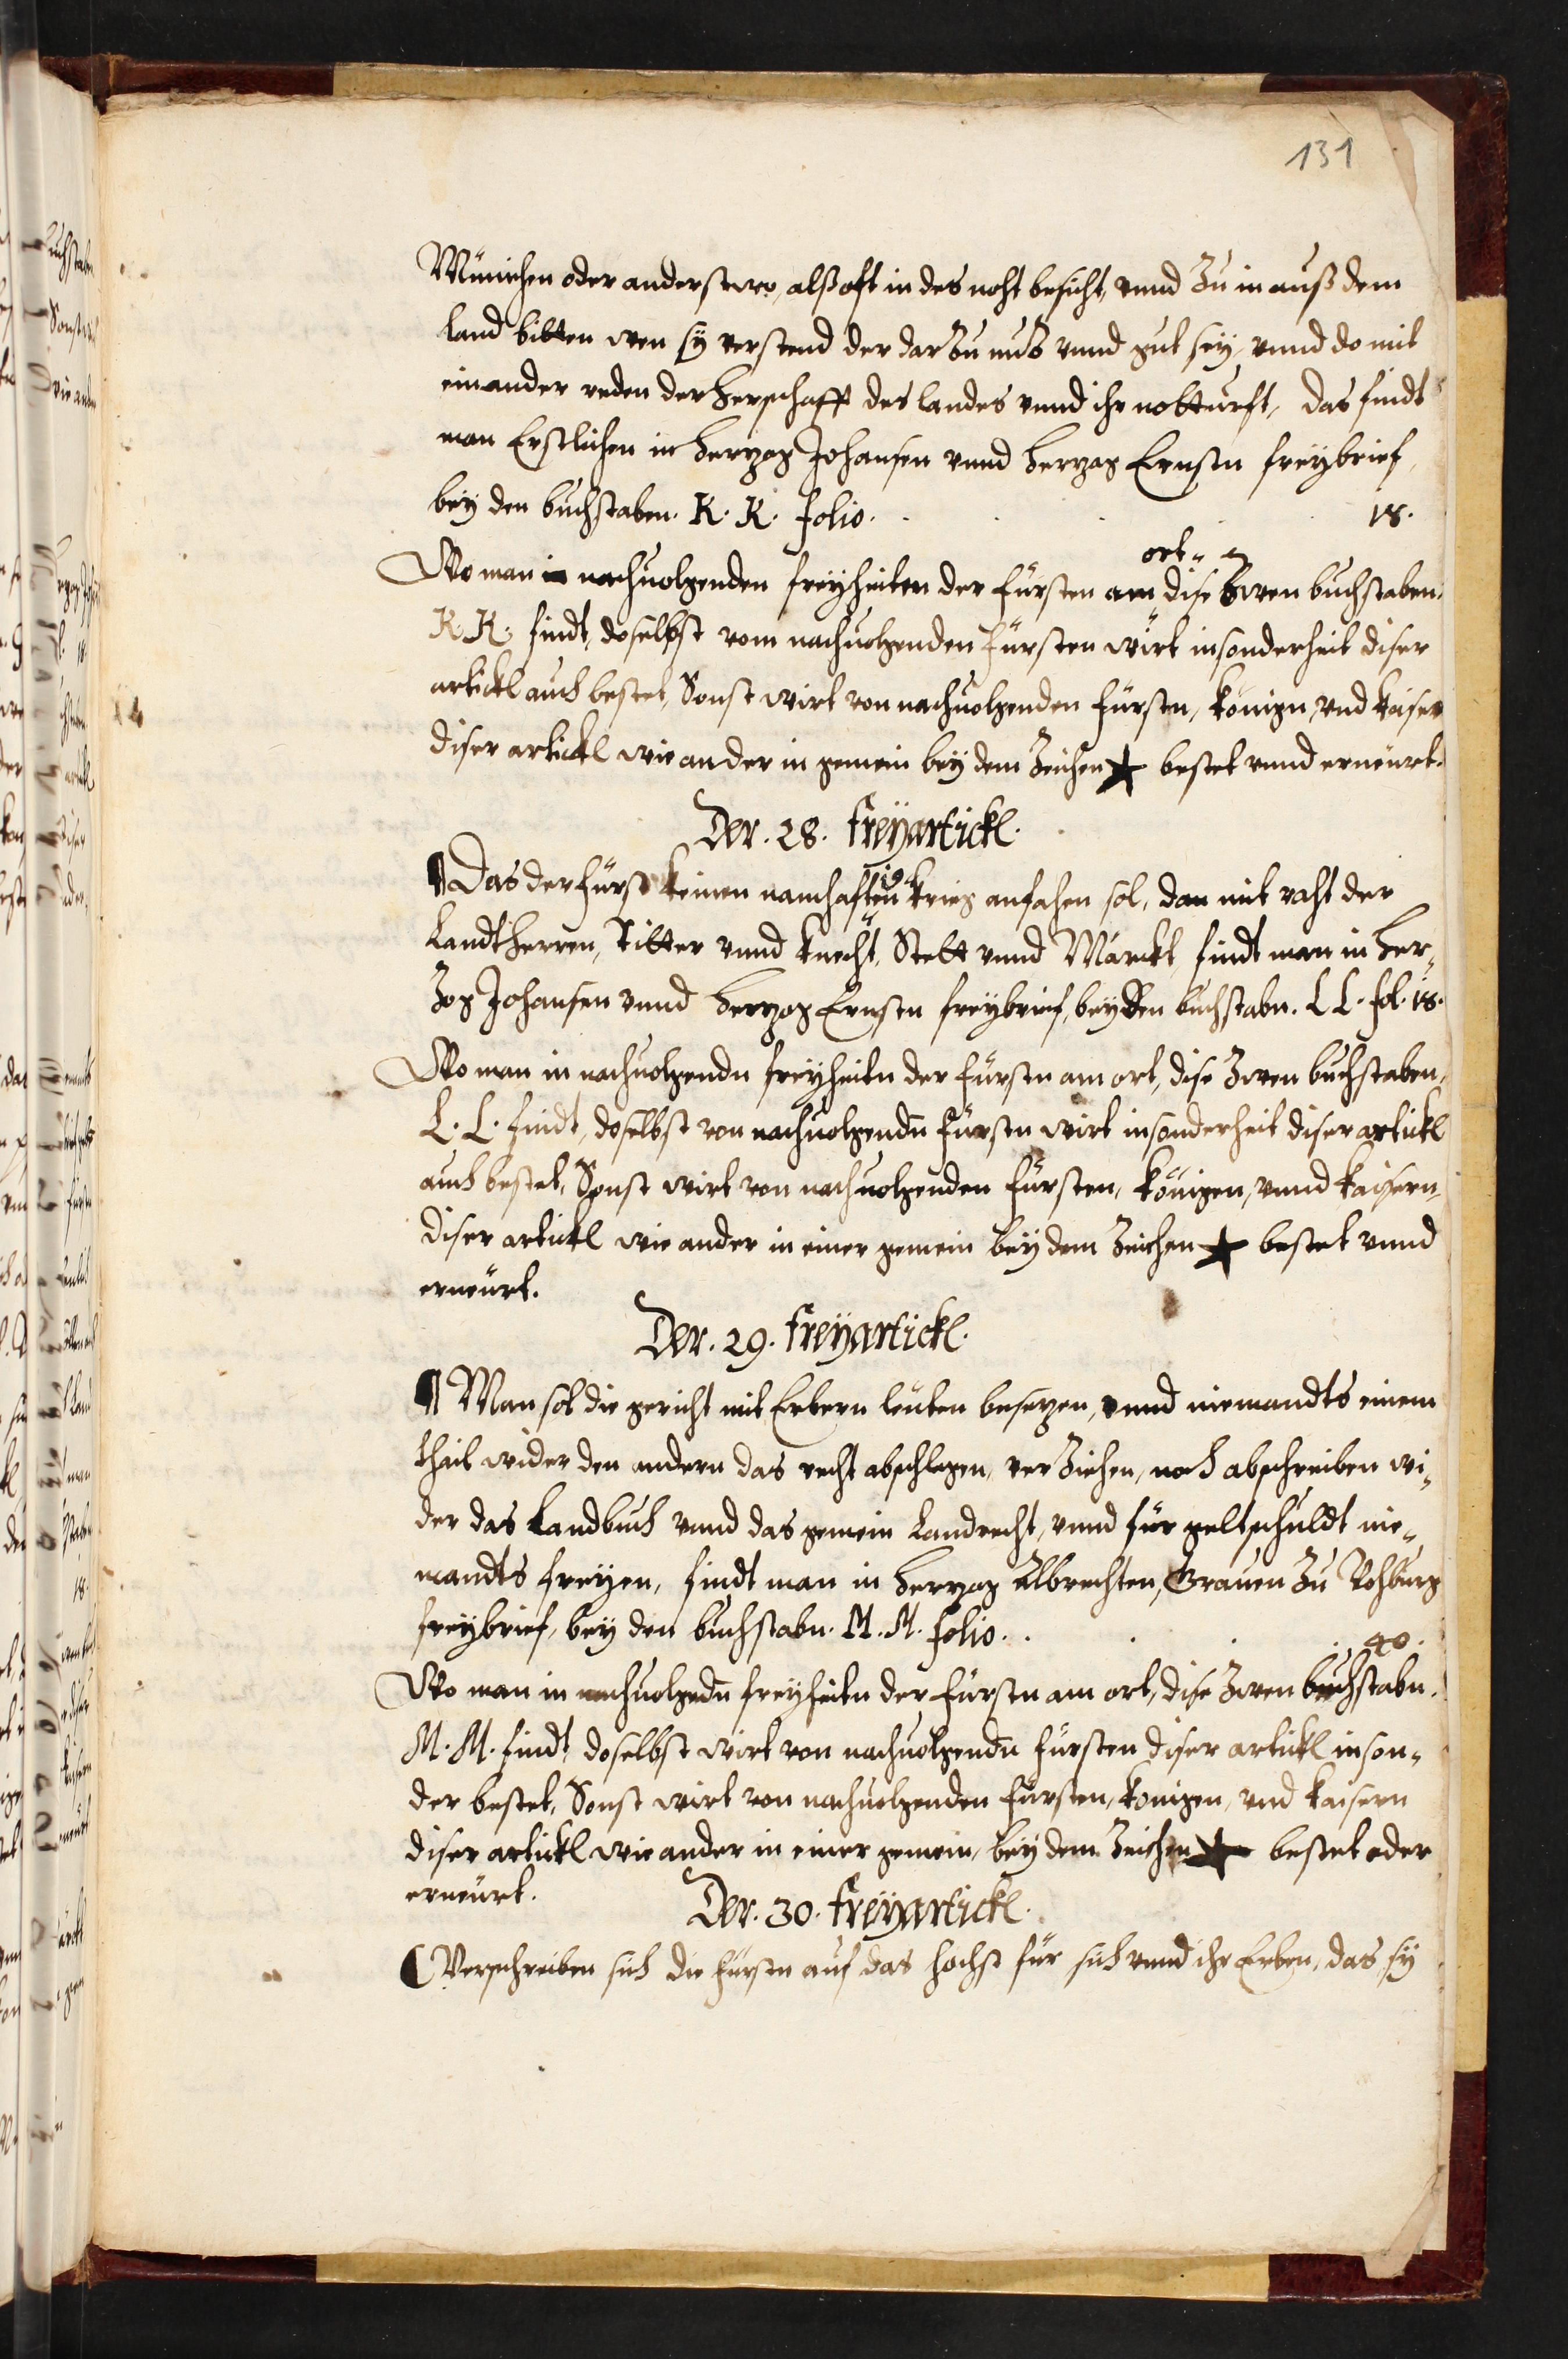 131
München oder anderstwo, alßoft in des noht besicht, vnnd Zu in auß dem
Land bitten wen sÿ verstend der dar Zu nuz vnnd gut seÿ, vnnd do mit
einander reden der herschafft des landes vnnd ihr notturft, das findt
man Erstlichen in herzog Johansen vnnd herzog Ernstn freÿbrief,
beÿ den buchstaben. K. K. folio. 18.
ort
Wo man in nachuolgenden freÿheiten der fürsten am dise Zwen buchstaben.
K. K. findt, doselbst vom nachuolgenden fürsten wirt insonderheit diser
artickl auch bestet, Sonst wirt von nachuolgenden fürsten, könign, vnd kaiser
diser artickl wie ander in gemein beÿ dem Zeichen ★ bestet vnnd erneürt.
Der. 28. freÿartickl.
¶ Das der fürst keinen namhaften krieg anfahen sol, dan mit raht der
Landtherren, Ritter vnnd knecht, Stett vnnd Märckt, findt man in her-
zog Johansen vnnd herzog Ernsten freÿbrief, beÿ den buchstabn. L L. fol. 18.
Wo man in nachuolgendn freÿheitn der fürstn am ort, dise Zwen buchstaben,
L. L. findt, doselbst von nachuolgendn fürstn wirt insonderheit diser artickl
auch bestet, Sonst wirt von nachuolgenden fürsten, königen, vnnd kaisern,
diser artickl wie ander in einer gemein beÿ dem Zeichen ★ bestet vnnd
erneürt.
Der. 29. freÿartickl.
¶ Man sol die gericht mit Erbern leuten besezen, vnnd niemandts einem
thail wider den andern das recht abschlagen, verZiehen, noch abschreiben wi-
der das Landbuch vnnd das gemein Landrecht, vnnd für geltschuldt nie-
mandts freÿen, findt man in herzog Albrechten, Grauen Zu Vohburg
freÿbrief, beÿ den buchstabn. M. M. folio. 40.
Wo man in nachuolgedn freÿheitn der fürstn am ort, dise Zwen buchstabn.
M. M. findt, doselbst wirt von nachuolgendn fürsten diser artickl inson-
der bestet, Sonst wirt von nachuolgenden fürsten, königen, vnd kaisern
diser artickl wie ander in einer gemein, beÿ dem Zeichen ★ bestet oder
erneürt.
Der. 30. freÿartickl.
¶ Verschreiben sich die fürstn auf das hochst für sich vnnd ihr Erben, das sÿ